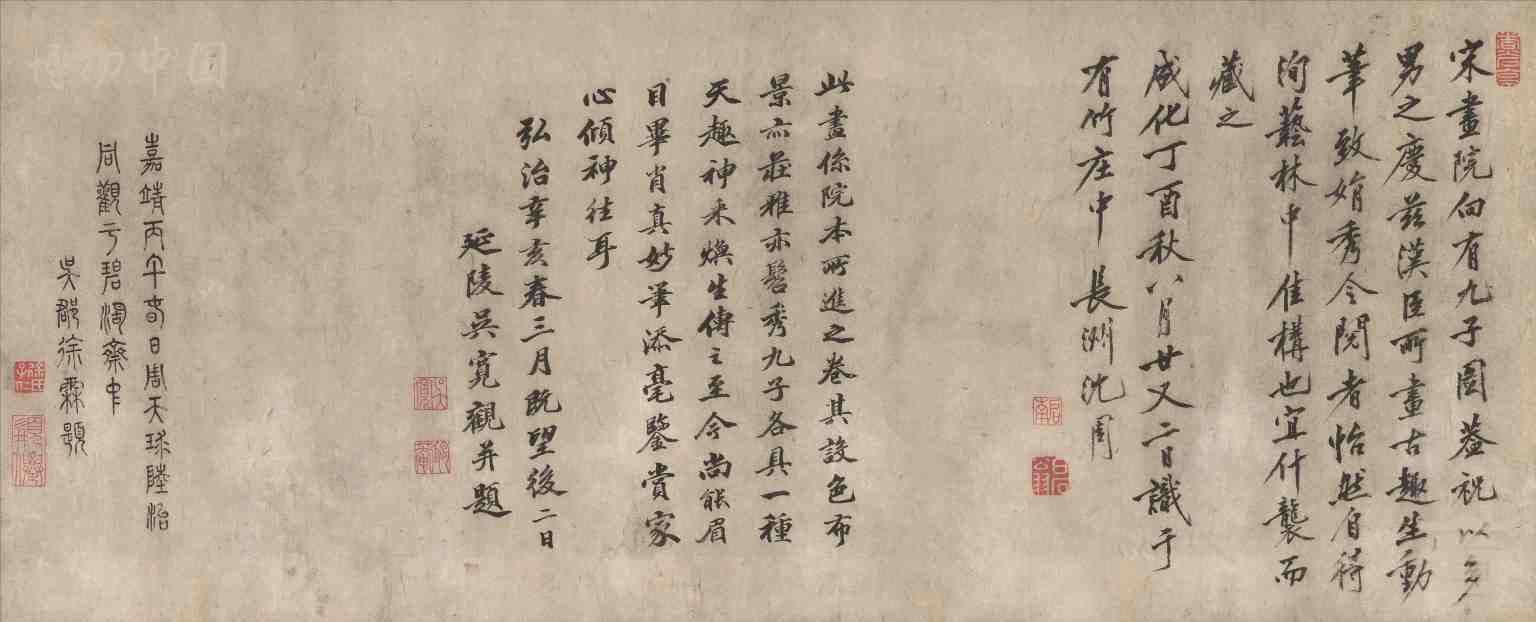 宋畫院向有九子圖蓋祝以多
男之慶茲漢臣所畫古趣生動
筆致娟秀令閱者怡然自得
洵藝林中佳構也宜什襲而
藏之
成化丁酉秋八月廿又二日識于
有竹庄中 長洲沈周
此畫係院本所進之卷其設色布
景亦莊雅亦髻秀九子各具一種
天趣神采煥生傳之至今尚能眉
目畢肖真妙筆添毫鑒賞家
心傾神往耳
弘治辛亥春三月既望後二日
延陵吳寬觀并題
嘉靖丙午春日周天球陸治
同觀于碧澗齋中
吳郡徐霖題
博物中国